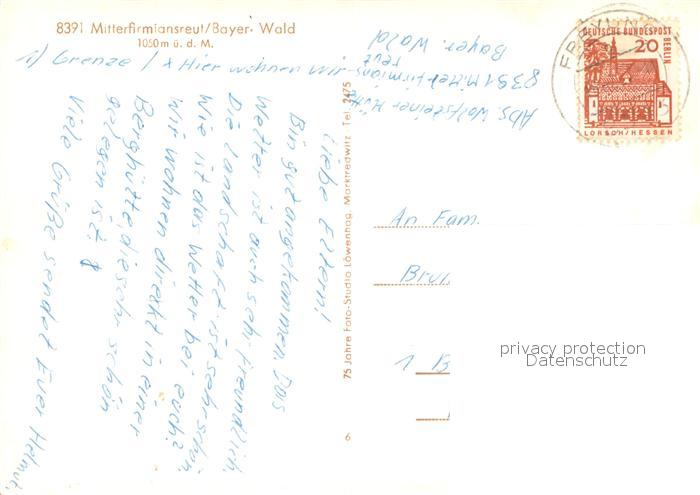 8391 Mitterfirmiansreut/Bayer. Wald
1050 m ü. d. M.
1) Grenze / x Hier wohnen wir
Abs. Wolfsteiner Hütte
8391 Mitterfirmians
reut
Bayer. Wald
Liebe Eltern!
Bin gut angekommen. Das
Wetter ist auch sehr freundlich.
Die Landschaft ist sehr schön.
Wie ist das Wetter bei euch?
Wir wohnen direkt in einer
Berghütte, die sehr schön
gelegen ist.
Viele Grüße sendet Euer Helmut.
75 Jahre Foto-Studio Löwenhag, Marktredwitz, Tel. 2475
6
DEUTSCHE BUNDESPOST
BERLIN
20
LORSCH/HESSEN
FREYUNG
An Fam.
1 B
privacy protection
Datenschutz